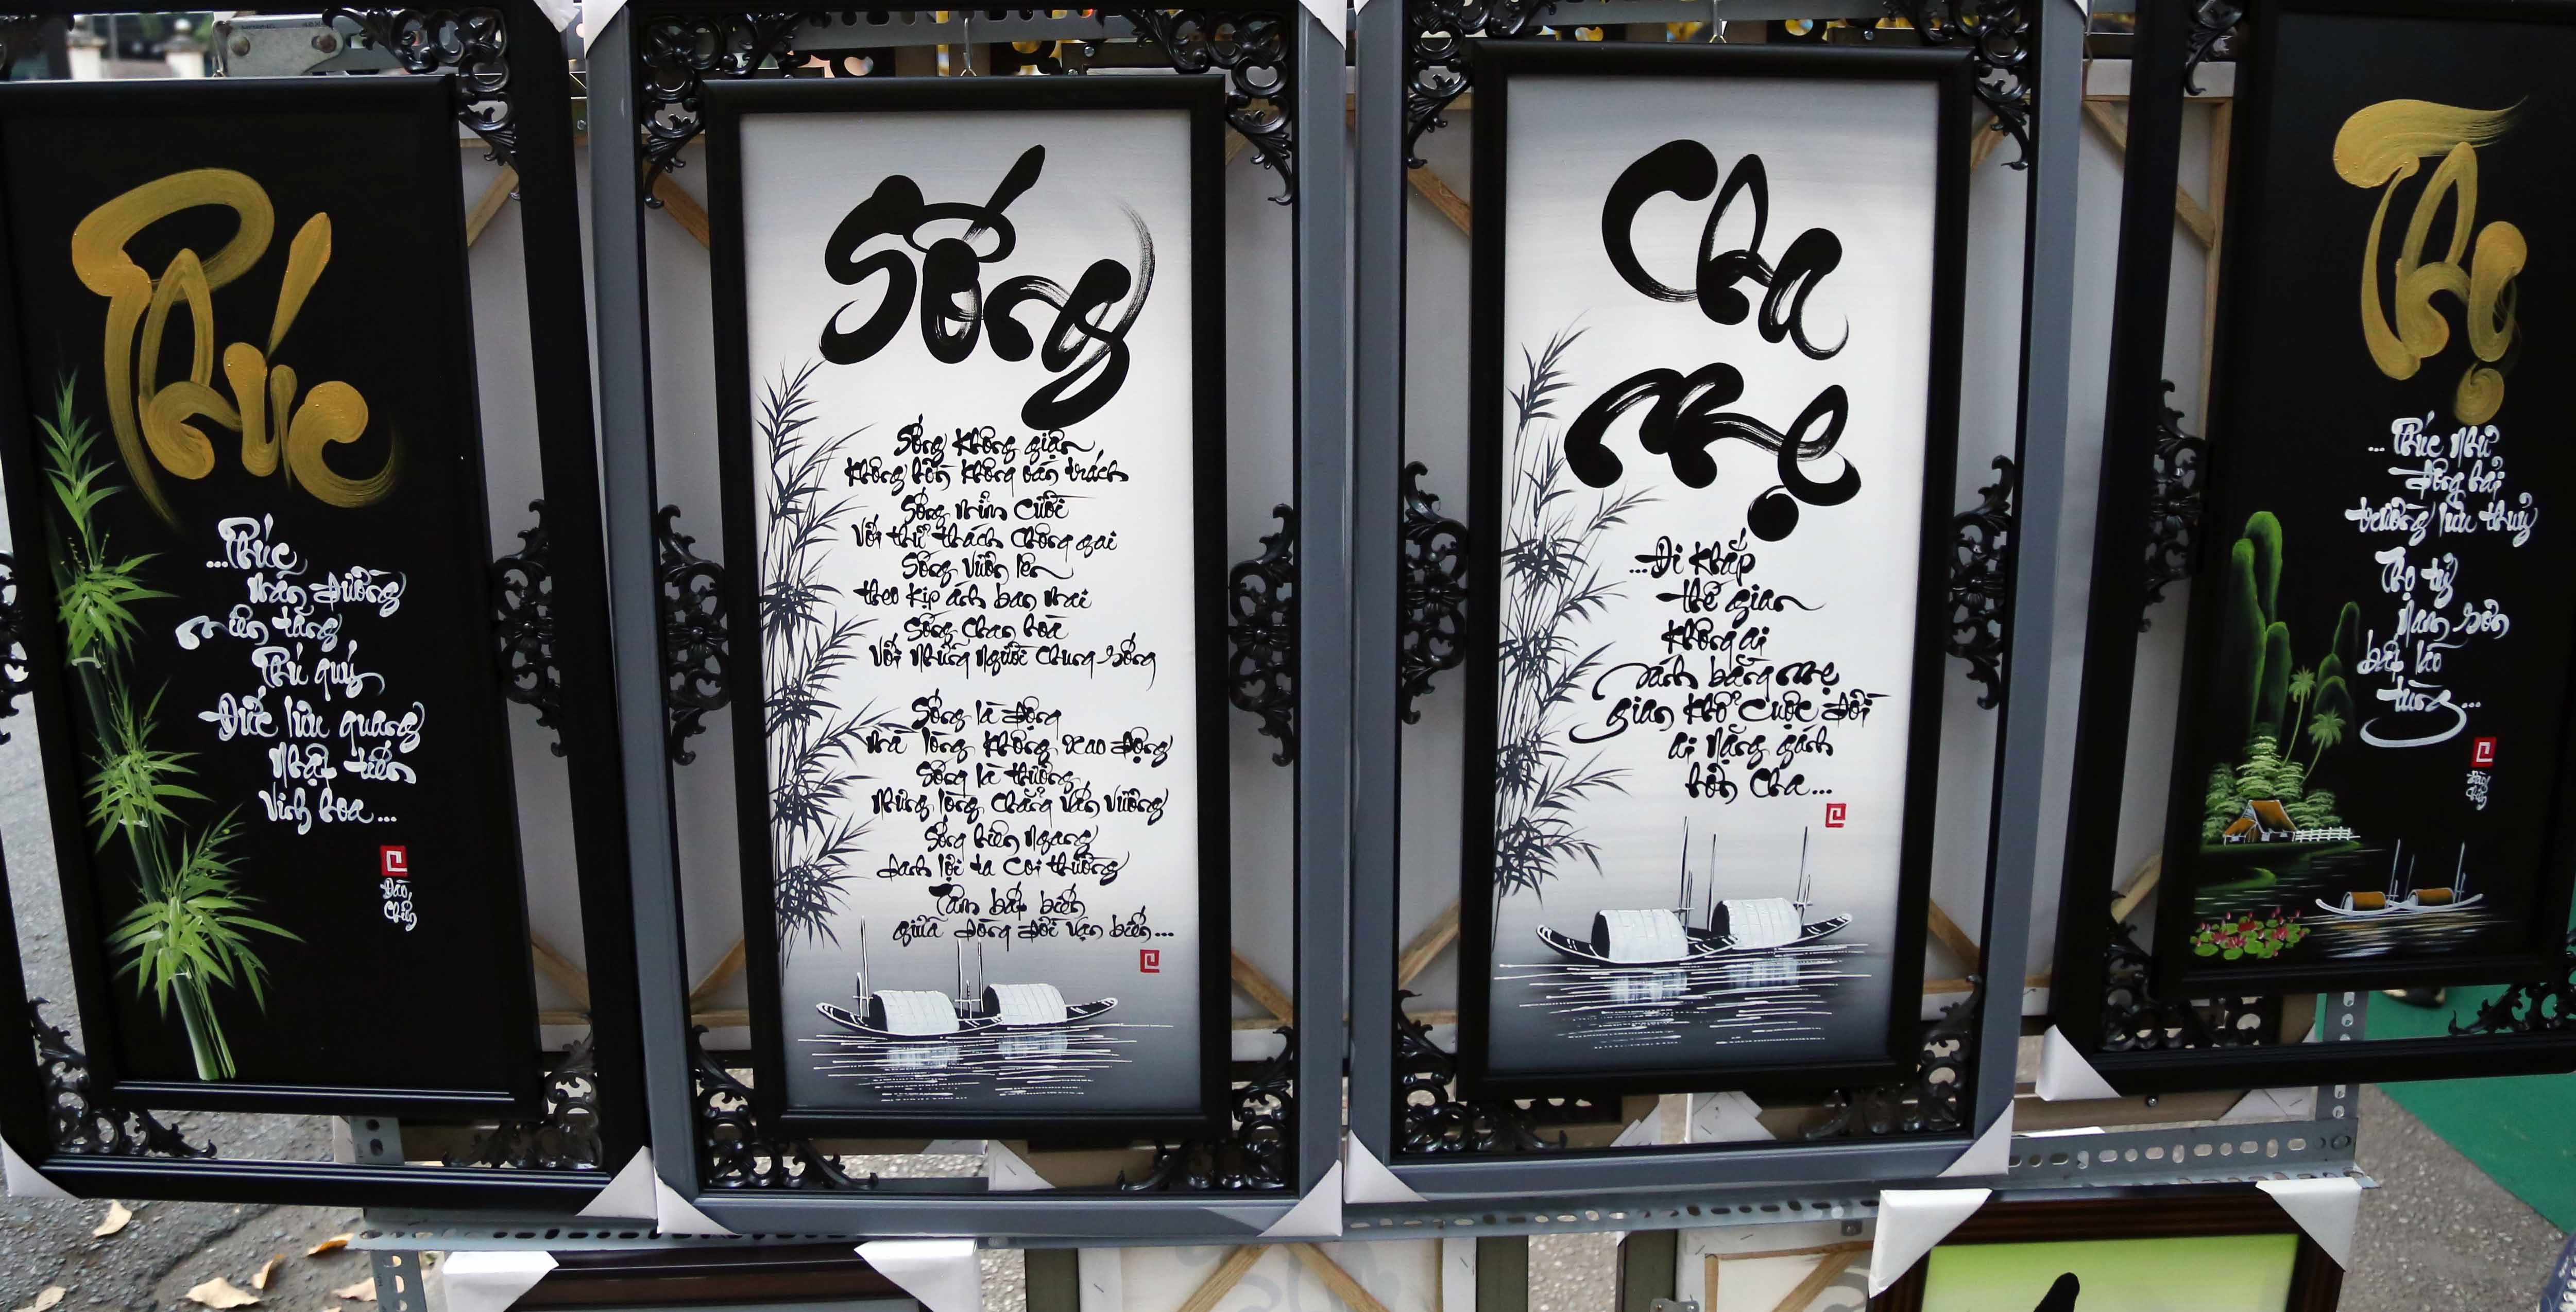 Phúc
...Phúc
mãn đường
niên tăng
Phú quý
Đức lưu quang
Nhật tiến
Vinh hoa...
Đào
Sống
Sống không giận
không hờn không oán trách
Sống mỉm cười
Với thử thách chông gai
Sống vươn lên
theo kịp ánh ban mai
Sống chan hoà
Với những người chung sống
Sống là động
mà lòng không xao động
Sống là thương
nhưng lòng chẳng vấn vương
Sống hiên ngang
danh lợi ta coi thường
Tâm bất biến
giữa dòng đời vạn biến...
Cha
Mẹ
...Đi khắp
thế gian
không ai
sánh bằng mẹ
gian khổ cuộc đời
ai nặng gánh
hơn Cha...
Thọ
...Phúc như
đông hải
trường lưu thuỷ
Thọ tỷ
Nam sơn
bất lão
tùng...